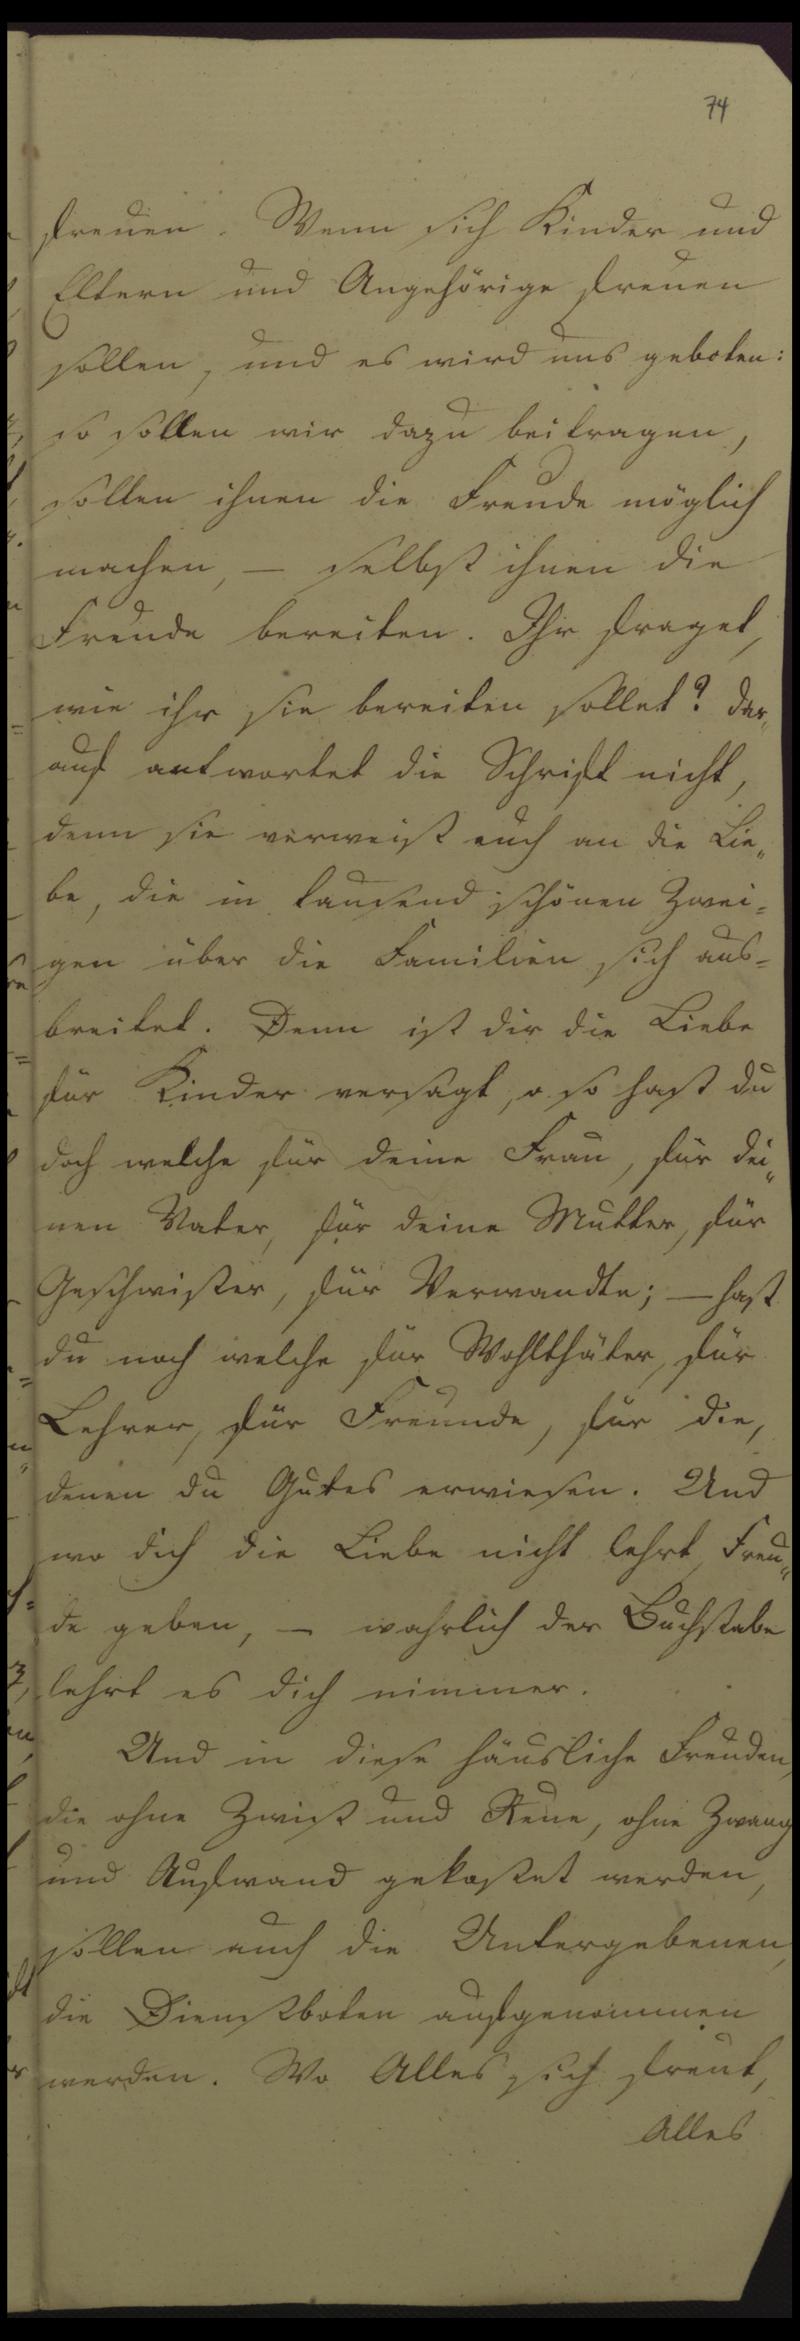 74
freuen. Wenn sich Kinder und
Eltern und Angehörige freuen
sollen, und es wird uns geboten:
so sollen wir dazu beitragen,
sollen ihnen die Freude möglich
machen, — selbst ihnen die
Freude bereiten. Ihr fraget,
wie ihr sie bereiten sollet? dar„
auf antwortet die Schrift nicht,
denn sie verweist euch an die Lie„
be, die in tausend schönen Zwei=
gen über die Familien sich aus=
breitet. Denn ist dir die Liebe
für Kinder versagt, o so hast du
doch welche für deine Frau, für dei„
nen Vater, für deine Mutter, für
Geschwister, für Verwandte; — hast
du noch welche für Wohlthäter, für
Lehrer, für Freunde, für die,
denen du Gutes erwiesen. Und
wo dich die Liebe nicht lehrt Freu„
de geben, — wahrlich der Buchstabe
lehrt es dich nimmer.
Und in diese häusliche Freuden,
die ohne Zwist und Reue, ohne Zwang
und Aufwand gekostet werden,
sollen auch die Untergebenen,
die Dienstboten aufgenommen
werden. Wo Alles sich freut,
Alles